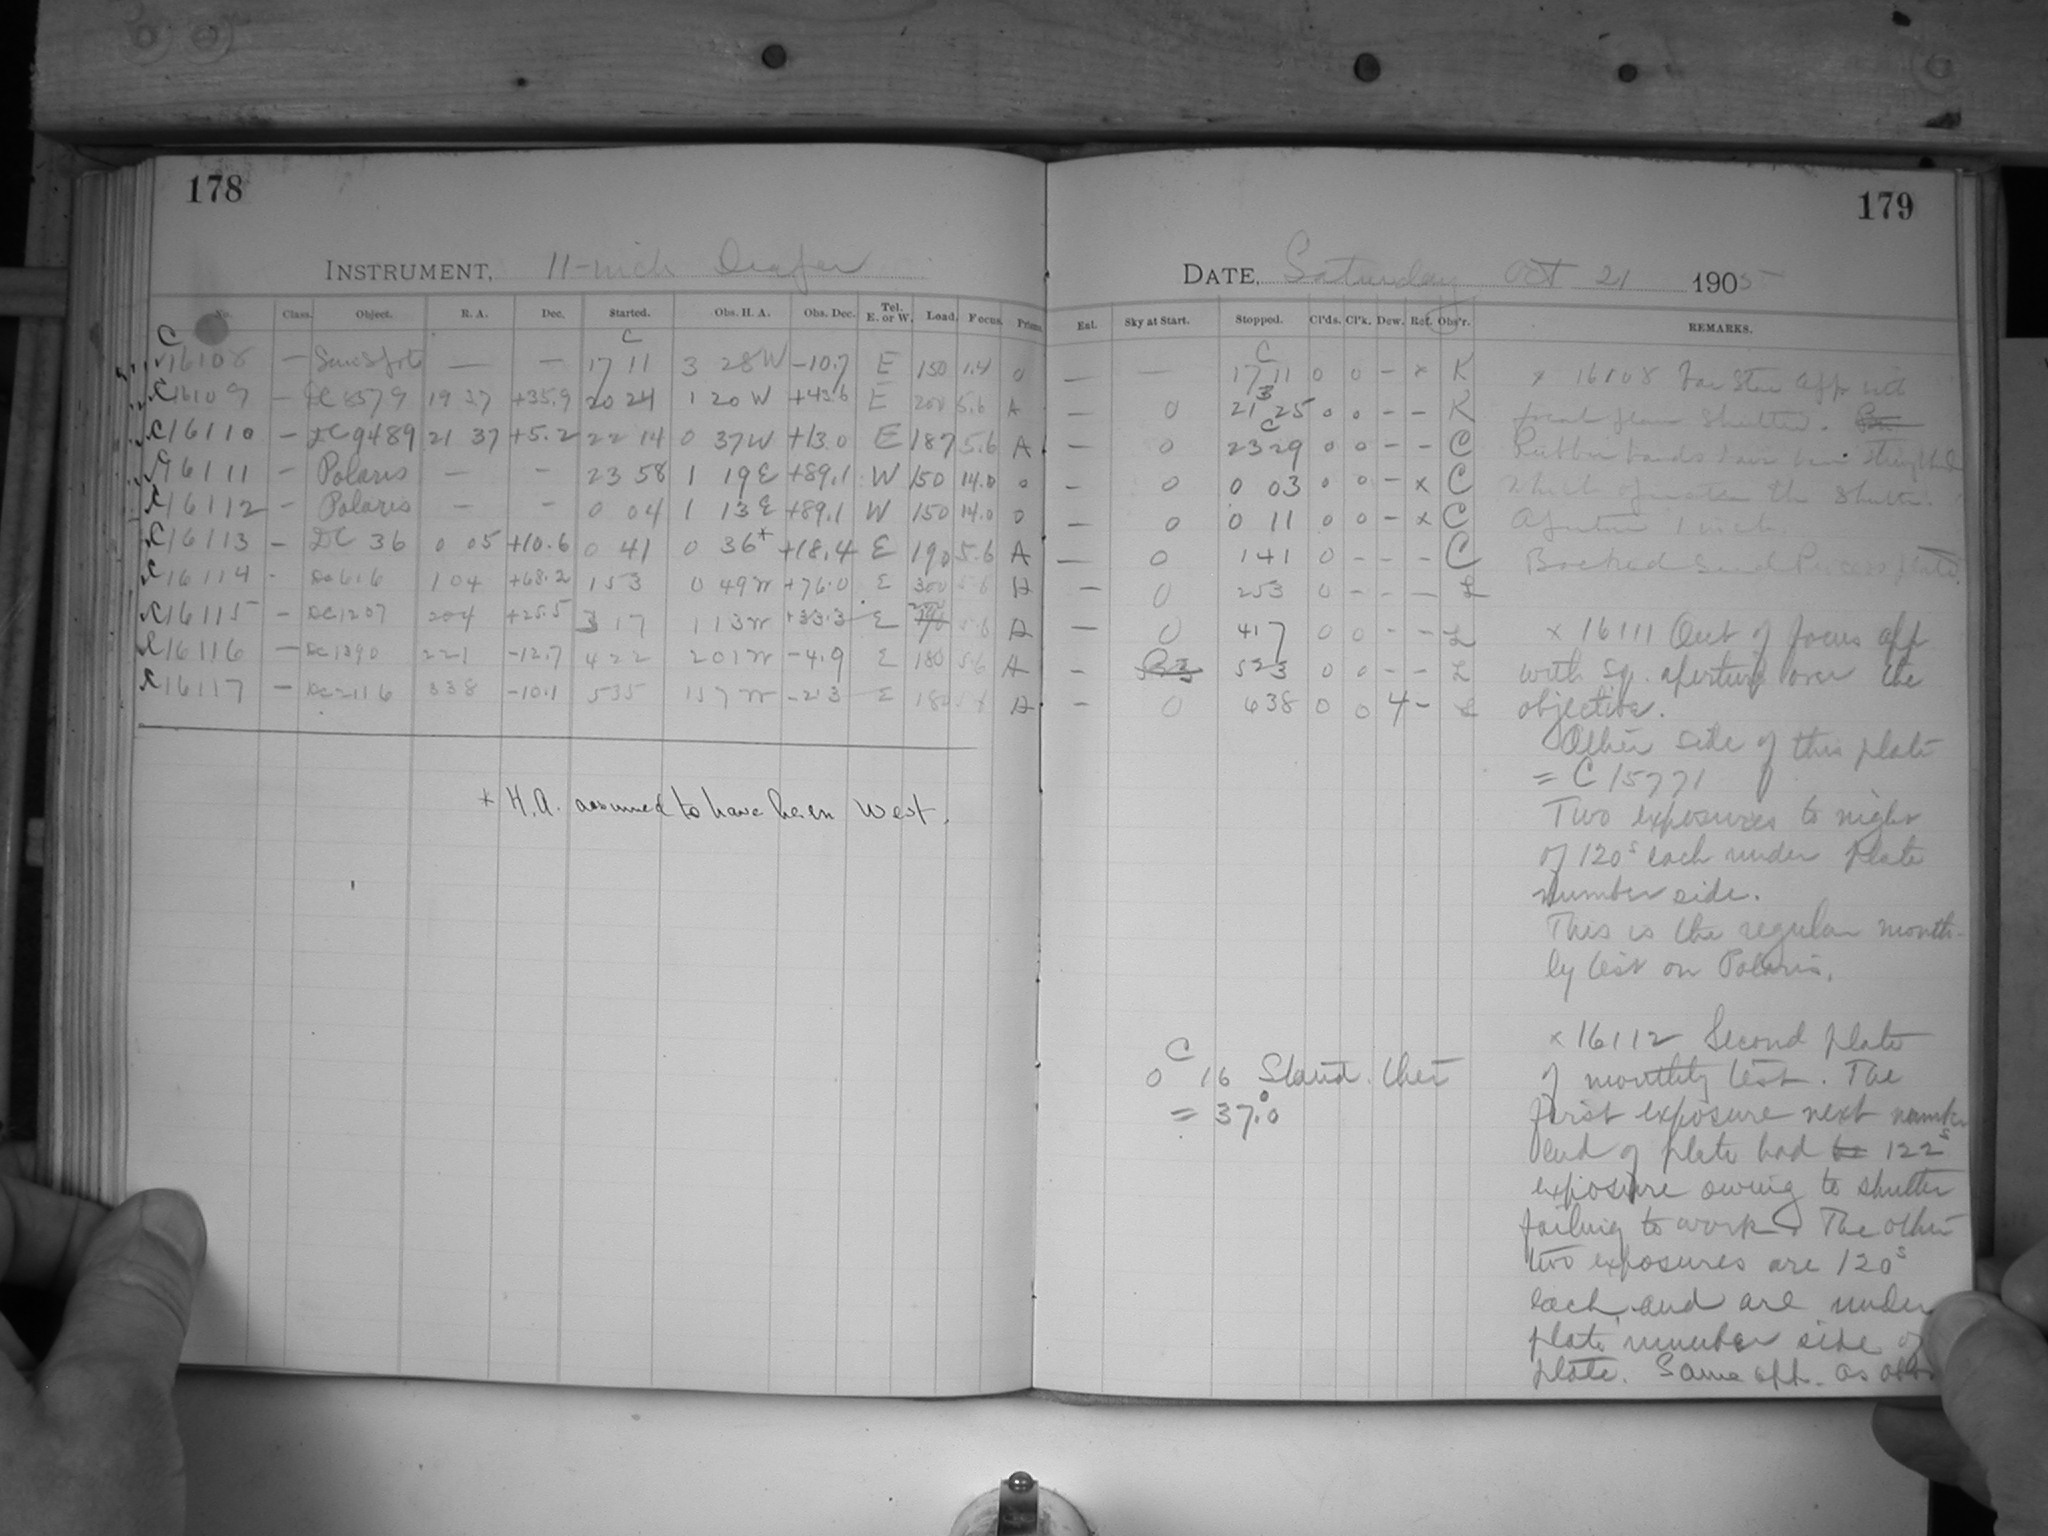 178
INSTRUMENT, 11-inch Draper
No. Class. Object. R. A. Dec. Started. Obs. H. A. Obs. Dec. Tel. E. or W. Load. Focus. Prisms.
C C
16108 — Sunspots — — 17 11 3 28 W -10.7 E 150 1.4 0
C16109 — DC 8579 19 37 +35.9 20 24 1 20 W +43.6 E 200 5.6 A
C16110 — DC 9489 21 37 +5.2 22 14 0 37W +13.0 E 187 5.6 A
16111 — Polaris — — 23 58 1 19 E +89.1 W 150 14.0 0
16112 — Polaris — — 0 04 1 13 E +89.1 W 150 14.0 0
C16113 — DC 36 0 05 +10.6 0 41 0 36* +18.4 E 190 5.6 A
16114 - DC 616 1 04 +68.2 1 53 0 49 W +76.0 E 300 5.6 A
16115 — DC 1207 2 04 +25.5 3 17 1 13 W +33.3 E 5.6 A
16116 — DC 1390 2 21 -12.7 4 22 2 01 W -4.9 E 180 5.6 A
16117 — DC 2116 3 38 -10.1 5 35 1 57 W -2.3 E 180 5.6 A
* H.A. assumed to have been West.
179
DATE, Saturday Oct 21 1905
Est. Sky at Start. Stopped. Cl'ds. Cl'k. Dew. Ref. Obs'r. REMARKS.
C
— — 17 11 0 0 - x K
— 0 21 25 0 0 - - K
C
— 0 23 29 0 0 - - C
- 0 0 03 0 0 - x C
— 0 0 11 0 0 - x C
— 0 1 41 0 - - - C
— 0 2 53 0 - - - L
— 0 4 17 0 0 - - L
- 523 5 23 0 0 - - L
- 0 6 38 0 0 4 - L
x 16108
focal plane shutter.
Rubber bands have been
which the shutter.
Aperture 1 inch.
Backed Seed Process plate.
x 16111 Out of focus app
with sq. aperture over the
objective.
Other side of this plate
= C 15771
Two exposures to night
of 120s each under plate
number side.
This is the regular month-
ly test on Polaris.
x 16112 Second plate
of monthly test. The
first exposure next number
end of plate had 122s
exposure owing to shutter
failing to work. The other
two exposures are 120s
each, and are under
plate number side of
plate. Same app. as
C
0 16 Stand. ther
= 37.°0